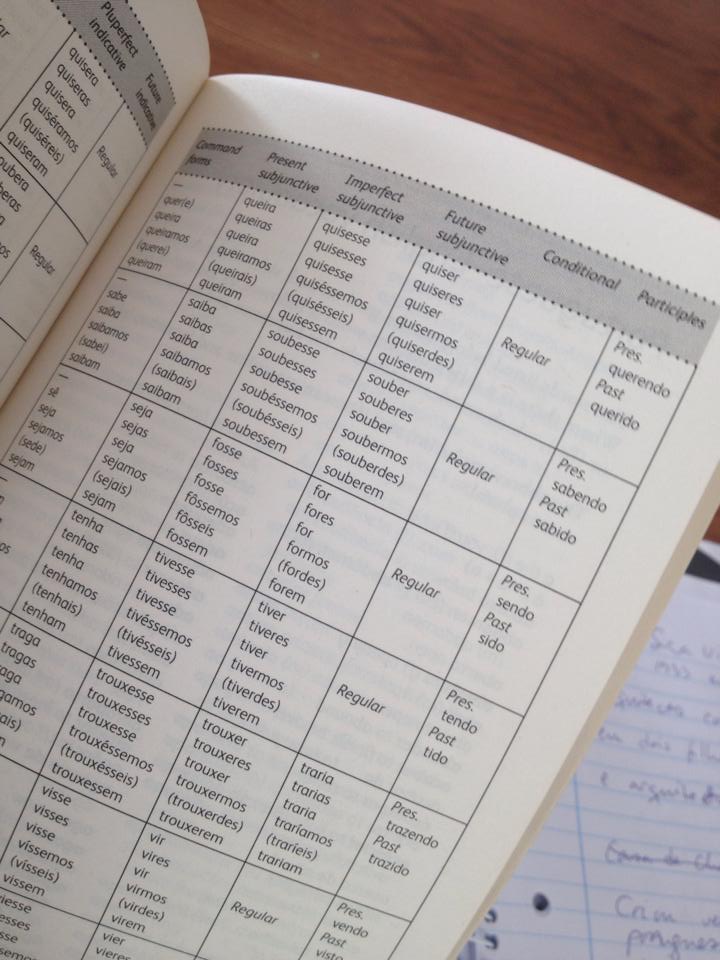 Pluperfect
indicative
Future
indicative
quisera
quiseras
quisera
quiséramos
(quiséreis)
quiseram
Regular
Regular
Command
forms
Present
subjunctive
Imperfect
subjunctive
Future
subjunctive
Conditional
Participles
—
quer(e)
queira
queiramos
(querei)
queiram
queira
queiras
queira
queiramos
(queirais)
queiram
quisesse
quisesses
quisesse
quiséssemos
(quisésseis)
quisessem
quiser
quiseres
quiser
quisermos
(quiserdes)
quiserem
Regular
Pres.
querendo
Past
querido
—
sabe
saiba
saibamos
(sabei)
saibam
saiba
saibas
saiba
saibamos
(saibais)
saibam
soubesse
soubesses
soubesse
soubéssemos
(soubésseis)
soubessem
souber
souberes
souber
soubermos
(souberdes)
souberem
Regular
Pres.
sabendo
Past
sabido
—
sê
seja
sejamos
(sede)
sejam
seja
sejas
seja
sejamos
(sejais)
sejam
fosse
fosses
fosse
fôssemos
fôsseis
fossem
for
fores
for
formos
(fordes)
forem
Regular
Pres.
sendo
Past
sido
tenha
tenhas
tenha
tenhamos
(tenhais)
tenham
tivesse
tivesses
tivesse
tivéssemos
(tivésseis)
tivessem
tiver
tiveres
tiver
tivermos
(tiverdes)
tiverem
Regular
Pres.
tendo
Past
tido
traga
tragas
trouxesse
trouxesses
trouxesse
trouxéssemos
(trouxésseis)
trouxessem
trouxer
trouxeres
trouxer
trouxermos
(trouxerdes)
trouxerem
traria
trarias
traria
traríamos
(traríeis)
trariam
Pres.
trazendo
Past
trazido
visse
visses
visse
víssemos
(vísseis)
vissem
vir
vires
vir
virmos
(virdes)
virem
Regular
Pres.
vendo
Past
visto
vier